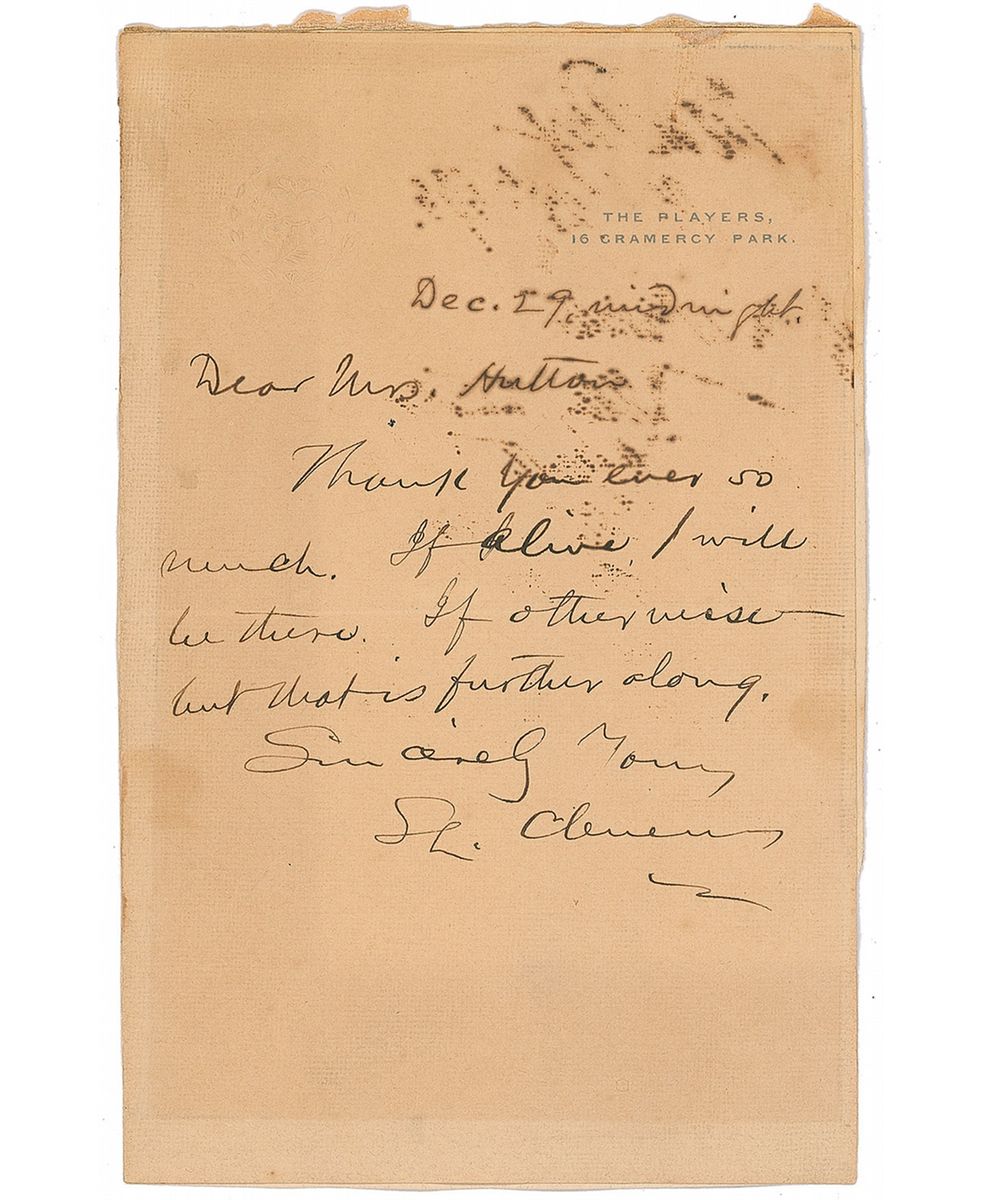 THE PLAYERS,
16 GRAMERCY PARK.
Dec. 29, midnight.
Dear Mrs. Hutton
Thank you ever so
much. If alive, I will
be there. If otherwise—
but that is further along.
Sincerely Yours
SL. Clemens